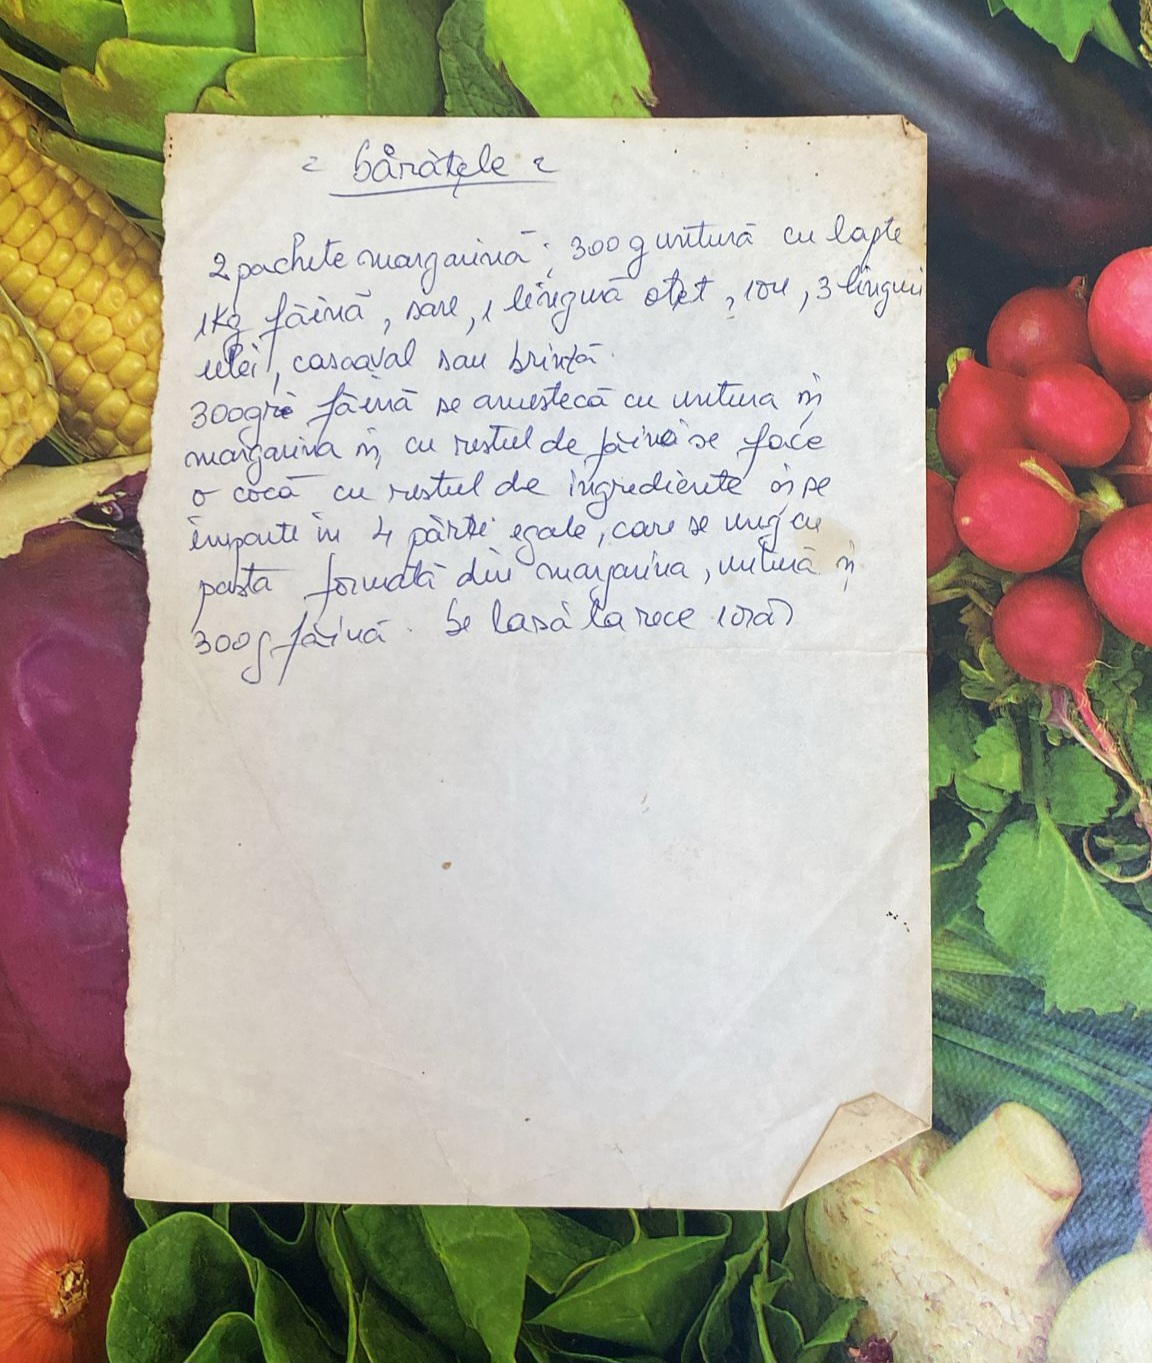 ~ Sărățele ~
2 pachete margarină; 300 g untură cu lapte
1Kg făină, sare, 1 lingură oțet, 1 ou, 3 linguri
ulei, cascaval sau brînză.
300gre făină se amestecă cu untura și
margarina și cu restul de făină se face
o cocă cu restul de ingrediente și se
împarte în 4 părți egale, care se ung cu
pasta formată din margarina, untură și
300g făină. Se lasă la rece 1 oră)